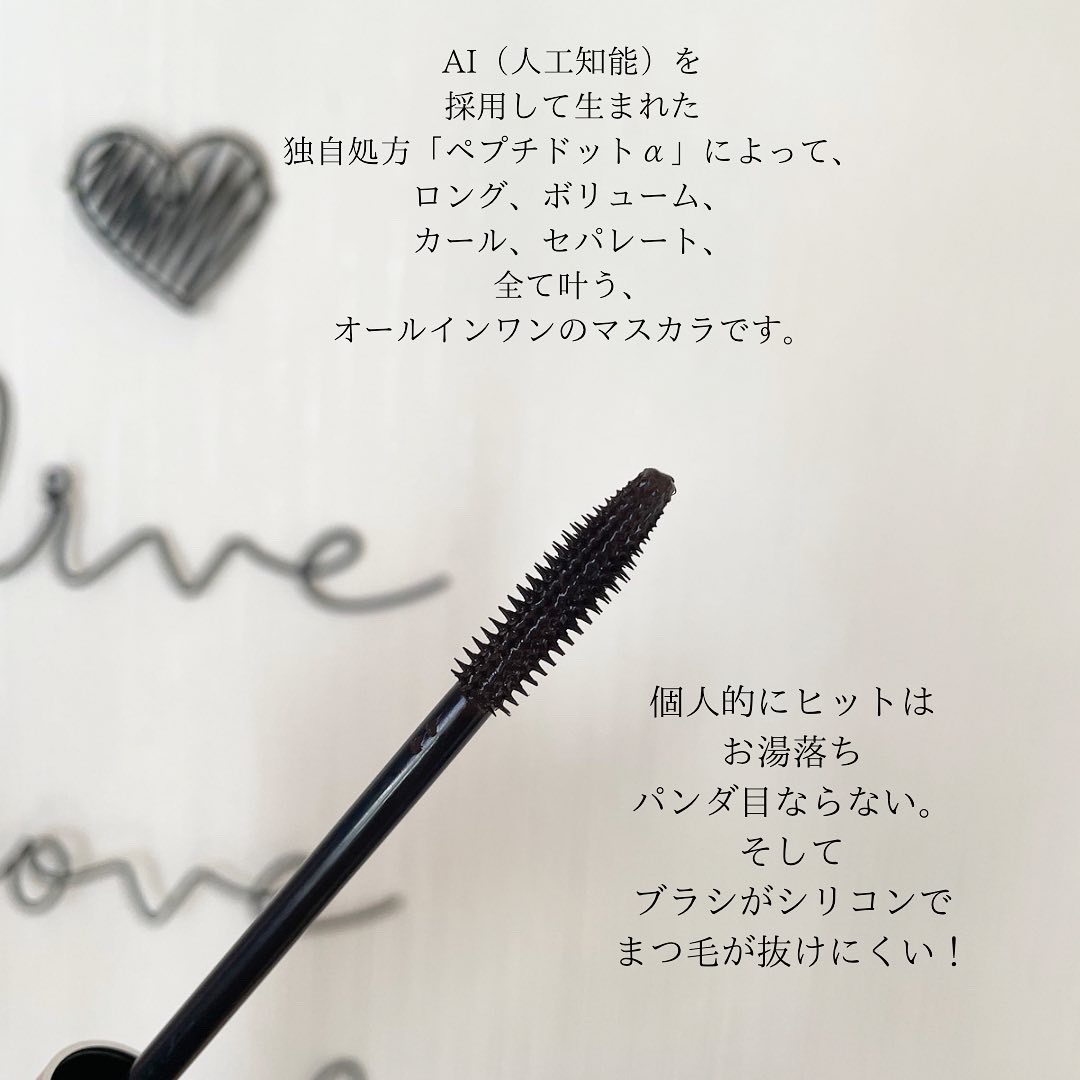 AI（人工知能）を
採用して生まれた
独自処方「ペプチドットα」によって、
ロング、ボリューム、
カール、セパレート、
全て叶う、
オールインワンのマスカラです。
live
love
個人的にヒットは
お湯落ち
パンダ目ならない。
そして
ブラシがシリコンで
まつ毛が抜けにくい！